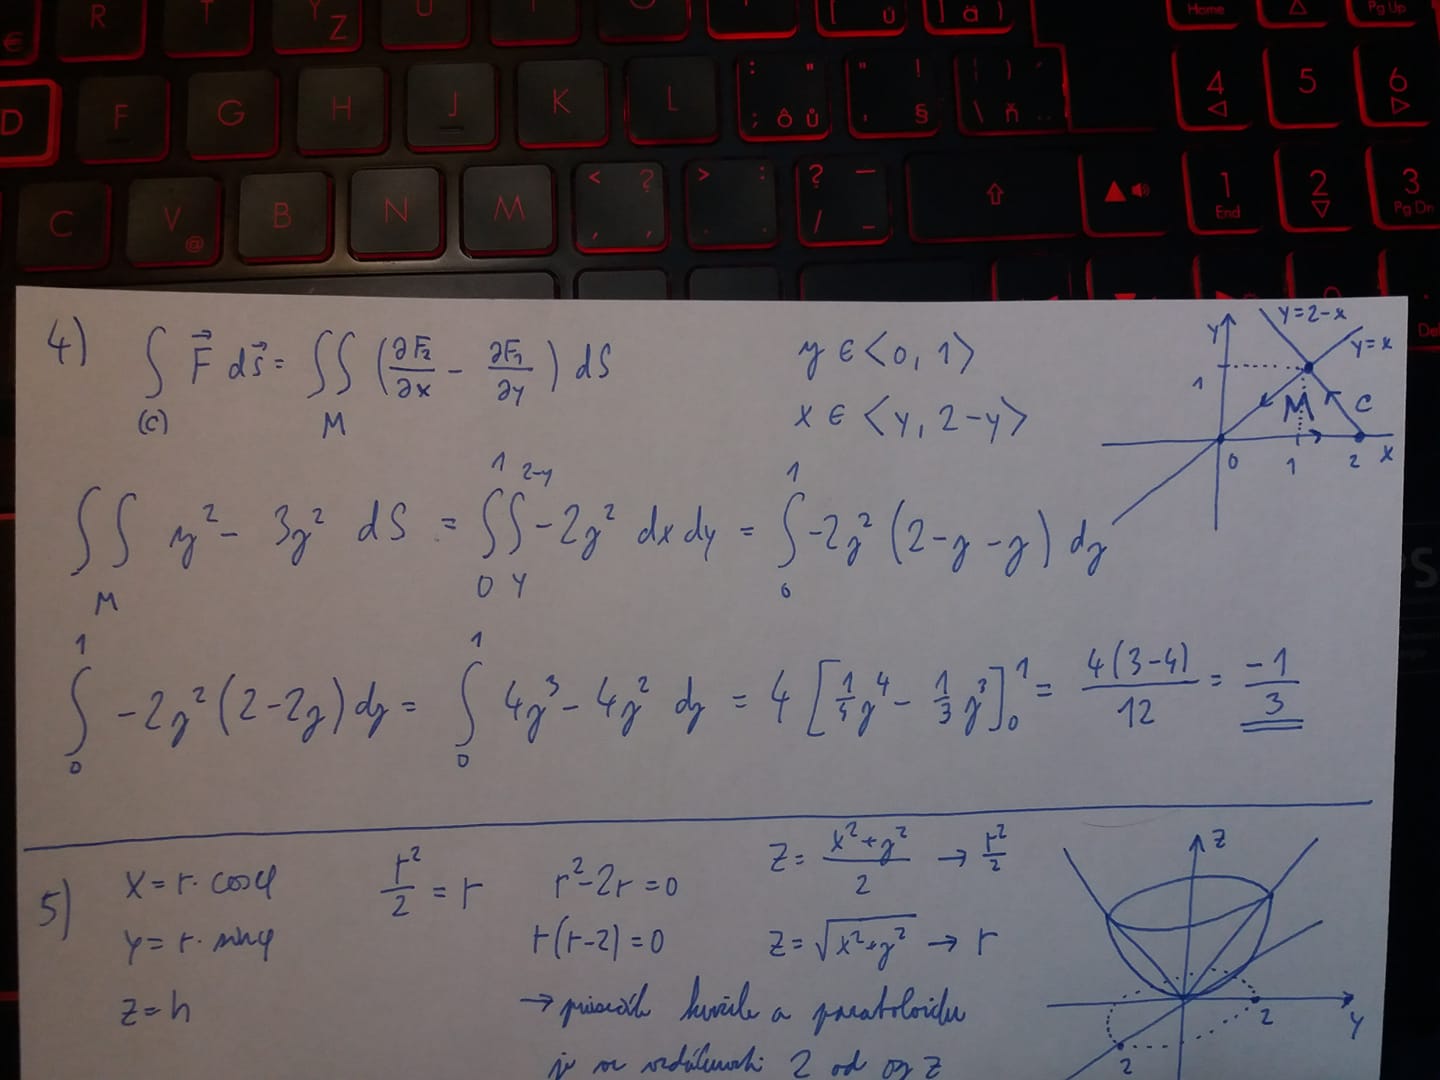 R T Y Z U I O P [ ú ] ä ) Home Pg Up
€
D F G H J K L : " ; ô ů " ! ' § ) \ ň 4 5 6
C V @ B N M < ? , > : . ? — / – ⇧ 1 End 2 3 Pg Dn
Del
4) ∫(C) F⃗ ds⃗ = ∬M (∂F₂/∂x - ∂F₁/∂y) dS
y ∈ <0, 1>
x ∈ <y, 2-y>
y=2-x
y=x
Y 1 M C 0 1 2 X
∬M y² - 3y² dS = ∫₀¹∫y^(2-y) -2y² dx dy = ∫₀¹ -2y² (2-y-y) dy
∫₀¹ -2y² (2-2y) dy = ∫₀¹ 4y³ - 4y² dy = 4 [1/4 y⁴ - 1/3 y³]₀¹ = 4(3-4)/12 = -1/3
5) x = r · cosφ
y = r · sinφ
z = h
r²/2 = r
r² - 2r = 0
r(r-2) = 0
z = (x²+y²)/2 → r²/2
z = √(x²+y²) → r
→ průsečík kužele a paraboloidu
je ve vzdálenosti 2 od osy z
Z 2 Y 2